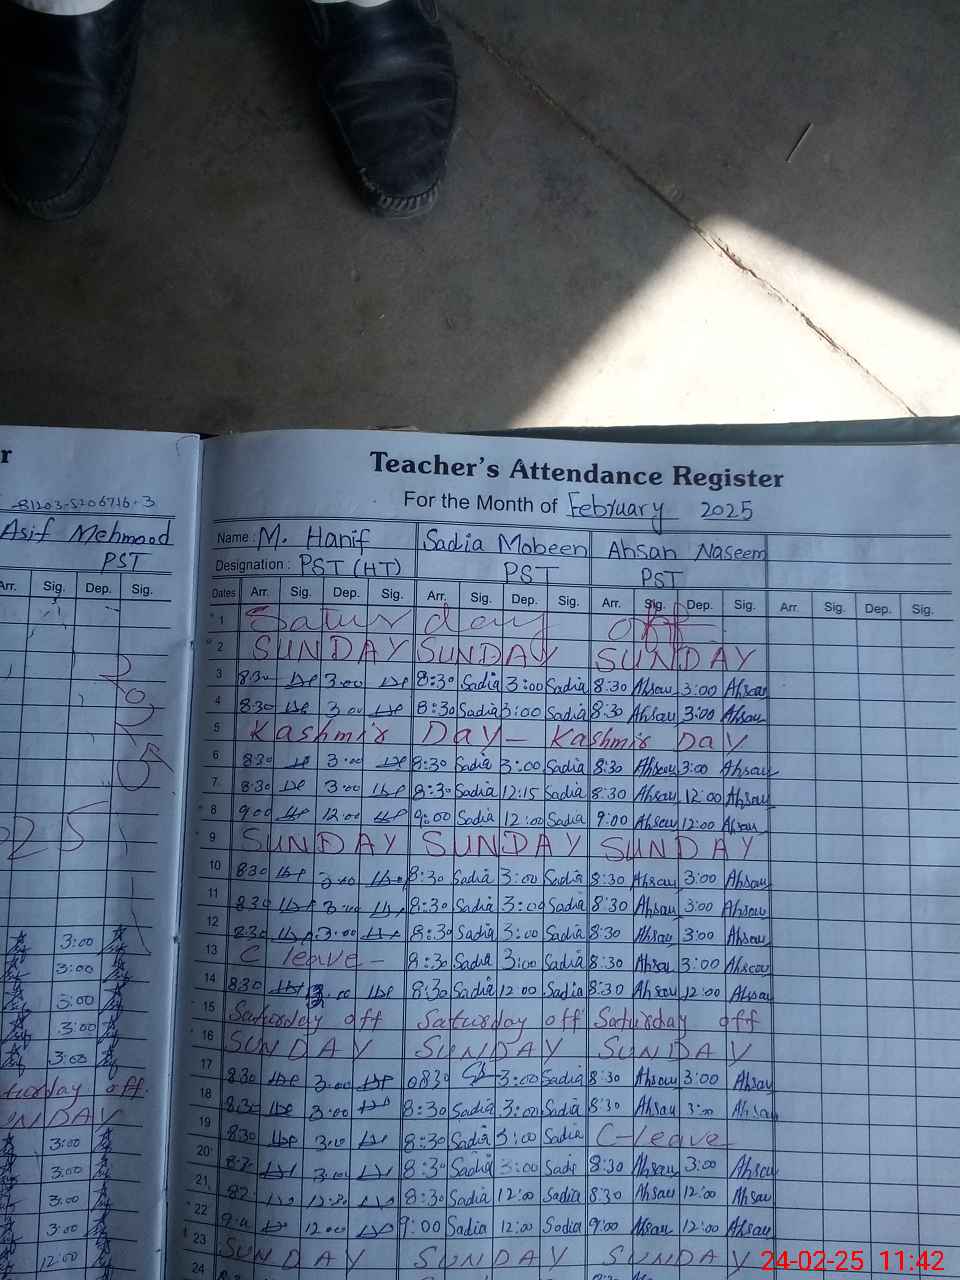 r
81203-5206716-3
Asif Mehmood
PST
Arr. Sig. Dep. Sig.
2025
3:00
3:00
3:00
3:00
3:00
turday off
UNDAY
3:00
3:00
3:00
3:00
12:00
Teacher's Attendance Register
For the Month of February 2025
Name: M. Hanif Sadia Mobeen Ahsan Naseem
Designation: PST (HT) PST PST
Dates Arr. Sig. Dep. Sig. Arr. Sig. Dep. Sig. Arr. Sig. Dep. Sig. Arr. Sig. Dep. Sig.
1 Saturday off
2 SUNDAY SUNDAY SUNDAY
3 8:30 3:00 8:30 Sadia 3:00 Sadia 8:30 Ahsan 3:00 Ahsan
4 8:30 3:00 8:30 Sadia 3:00 Sadia 8:30 Ahsan 3:00 Ahsan
5 Kashmir Day - Kashmir Day
6 8:30 3:00 8:30 Sadia 3:00 Sadia 8:30 Ahsan 3:00 Ahsan
7 8:30 3:00 8:30 Sadia 12:15 Sadia 8:30 Ahsan 12:00 Ahsan
8 9:00 12:00 9:00 Sadia 12:00 Sadia 9:00 Ahsan 12:00 Ahsan
9 SUNDAY SUNDAY SUNDAY
10 8:30 3:00 8:30 Sadia 3:00 Sadia 8:30 Ahsan 3:00 Ahsan
11 8:30 3:00 8:30 Sadia 3:00 Sadia 8:30 Ahsan 3:00 Ahsan
12 8:30 3:00 8:30 Sadia 3:00 Sadia 8:30 Ahsan 3:00 Ahsan
13 C leave - 8:30 Sadia 3:00 Sadia 8:30 Ahsan 3:00 Ahsan
14 8:30 8:30 Sadia 12:00 Sadia 8:30 Ahsan 12:00 Ahsan
15 Saturday off Saturday off Saturday off
16 SUNDAY SUNDAY SUNDAY
17 8:30 3:00 0830 3:00 Sadia 8:30 Ahsan 3:00 Ahsan
18 8:30 3:00 8:30 Sadia 3:00 Sadia 8:30 Ahsan 3:00 Ahsan
19 8:30 3:00 8:30 Sadia 3:00 Sadia C-leave
20 3:00 8:30 Sadia 3:00 Sadi 8:30 Ahsan 3:00 Ahsan
21 8:30 Sadia 12:00 Sadia 8:30 Ahsan 12:00 Ahsan
22 12:00 9:00 Sadia 12:00 Sadia 9:00 Ahsan 12:00 Ahsan
23 SUNDAY SUNDAY SUNDAY
24
24-02-25 11:42